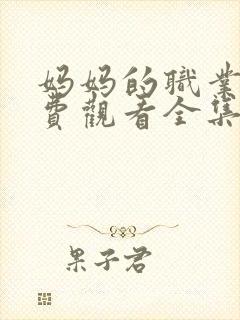 妈妈的職業
費觀看全集
果子君